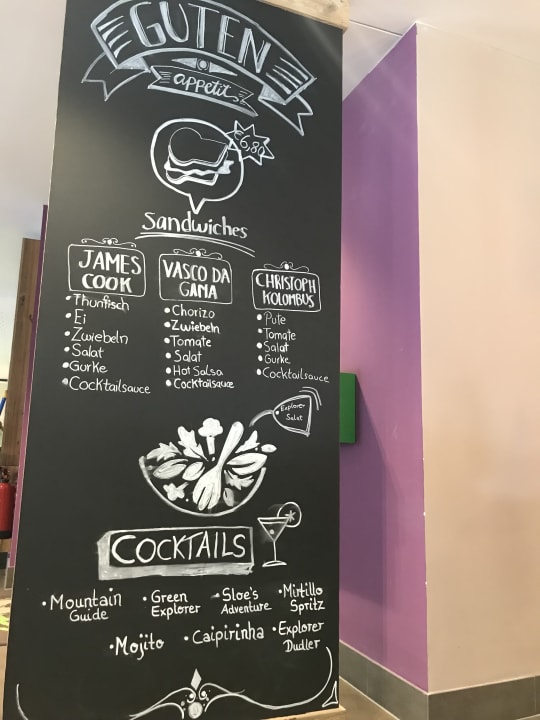 GUTEN
appetit
€6,80
Sandwiches
JAMES
COOK
• Thunfisch
• Ei
• Zwiebeln
• Salat
• Gurke
• Cocktailsauce
VASCO DA
GAMA
• Chorizo
• Zwiebeln
• Tomate
• Salat
• Hot Salsa
• Cocktailsauce
CHRISTOPH
KOLOMBUS
• Pute
• Tomate
• Salat
• Gurke
• Cocktailsauce
Explorer
Salat
COCKTAILS
• Mountain
Guide
• Green
Explorer
• Sloe's
Adventure
• Mirtillo
Spritz
• Mojito
• Caipirinha
• Explorer
Dudler